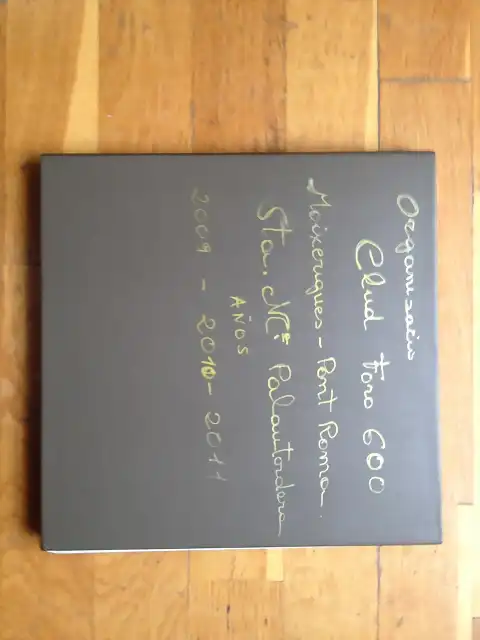 Organisacio
Clud Foro 600
Moixerigues - Pont Roma.
Sta. Mª Palautordera
AÑOS
2009 - 2010 - 2011